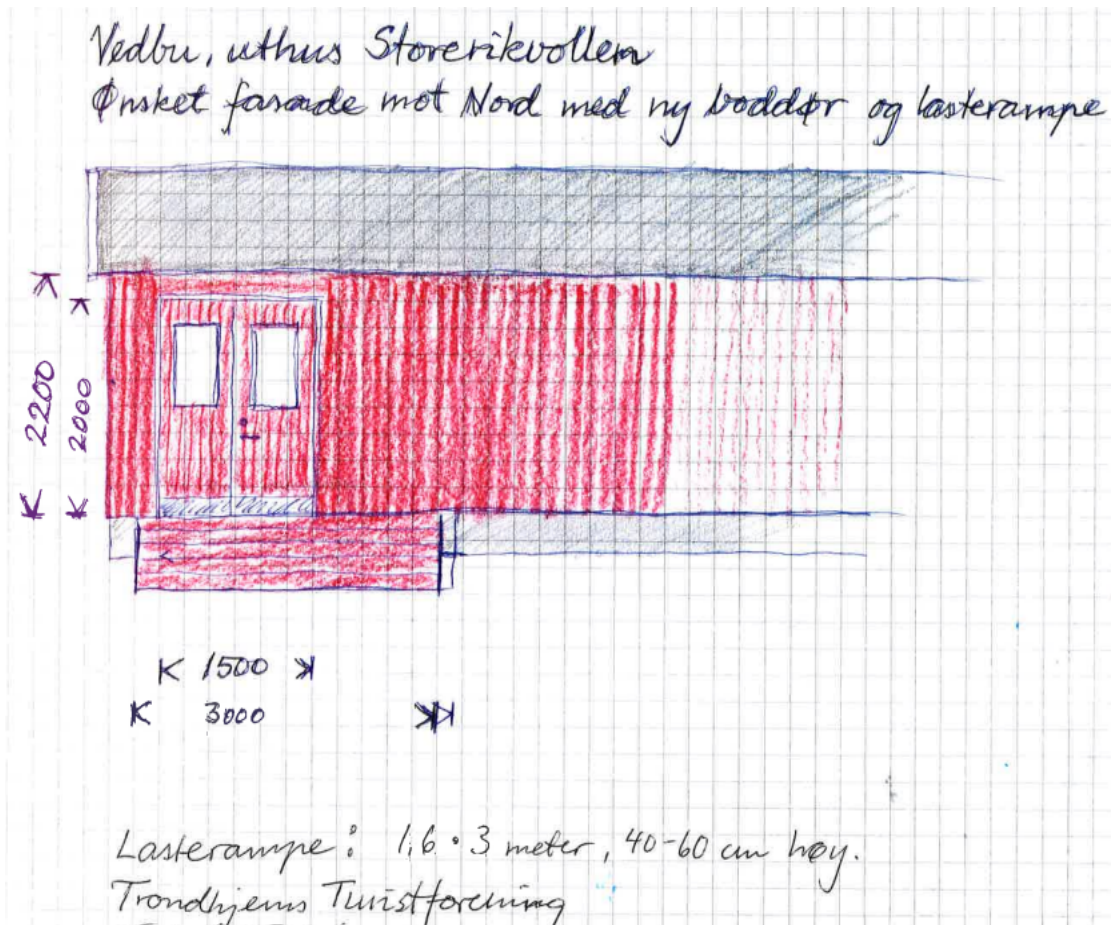 Vedbu, uthus Storerikvollen
Ønsket fasade mot Nord med ny boddør og lasterampe
2200
2000
1500
3000
Lasterampe: 1,6 · 3 meter, 40-60 cm høy.
Trondhjems Turistforening